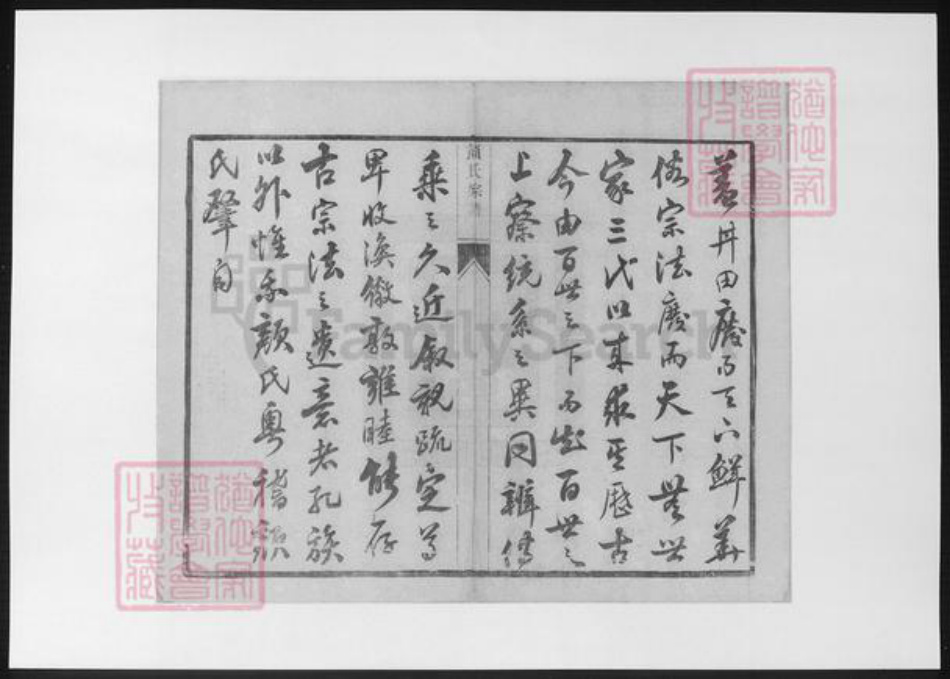 蓋井田廢而天下鮮善
俗宗法廢而天下無世
家三代以來求其歷古
今由百世之下而知百世之
上察統系之異同辨傳
乘之久近叙親疏定尊
卑收渙散敦雍睦能存
古宗法之遺意者孔族
以外惟我顏氏粤稽顏
氏肇自
顏氏宗譜
猶他家譜學會收藏
FamilySearch
猶他家譜學會收藏